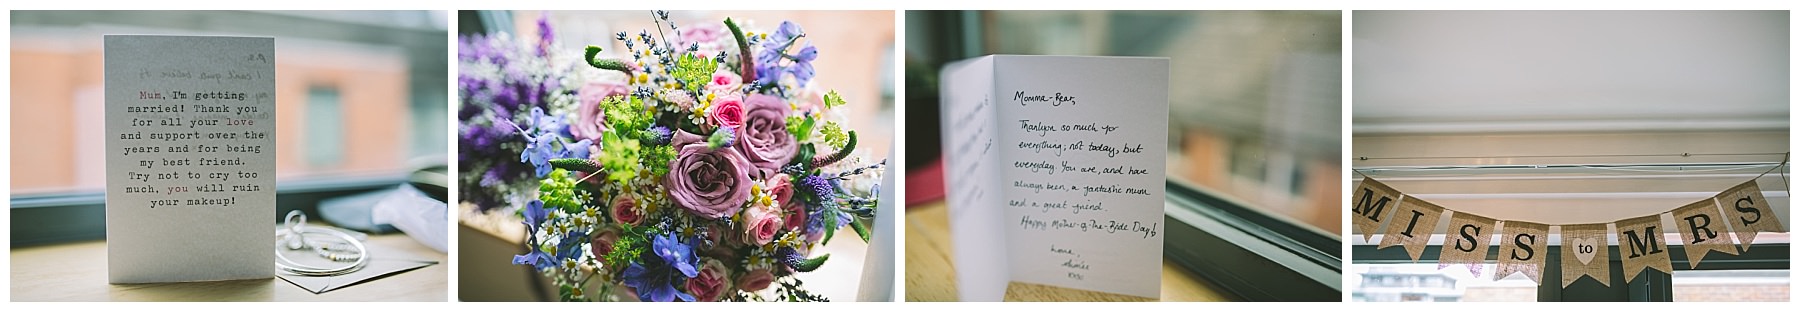 Mum, I'm getting
married! Thank you
for all your love
and support over the
years and for being
my best friend.
Try not to cry too
much, you will ruin
your makeup!
Momma-Bear,
Thankyou so much for
everything; not today, but
everyday. You are, and have
always been, a fantastic mum
and a great friend.
Happy Mother-of-the-Bride Day!
Love,
xoxo
MISS to MRS